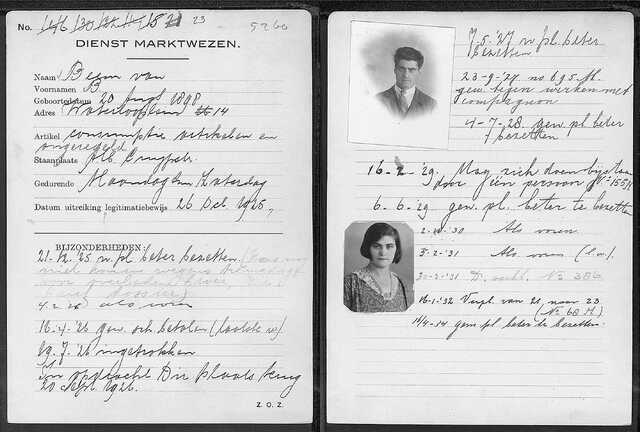 No. 146 130 18 21 23
DIENST MARKTWEZEN.
Naam Beem van
Voornamen B
Geboortedatum 20 Augt 1898
Adres Waterlooplein 14
Artikel consumptie artikelen en
ongeregeld
Staanplaats Alb Cuypstr.
Gedurende Maandag t/m Zaterdag
Datum uitreiking legitimatiebewijs 26 Oct. 1925
BIJZONDERHEDEN:
21-12-'25 w. pl. beter bezetten.
niet komen wegens
4-2-26 als voren
16-4-'26 gew. om betalen (laatste w.)
29-7-'26 ingetrokken
In opdracht Dir plaats terug
20 Sept. 1926.
Z. O. Z.
7-5-'27 w. pl. beter
bezetten
23-9-'27 no 695 M.
gew. tegen werken met
compagnon
4-7-28. gew. pl. beter
bezetten
16-2-'29. Mag zich doen bijstaan
door één persoon No 155 M
6-6-'29 gew. pl. beter te bezetten
2-10-'30 Als voren
3-2-'31 Als voren (l.w.)
D. No 386
16-1-'32 Verpl. van 21 naar 23
(No 60 M)
gew. pl. beter te bezetten.